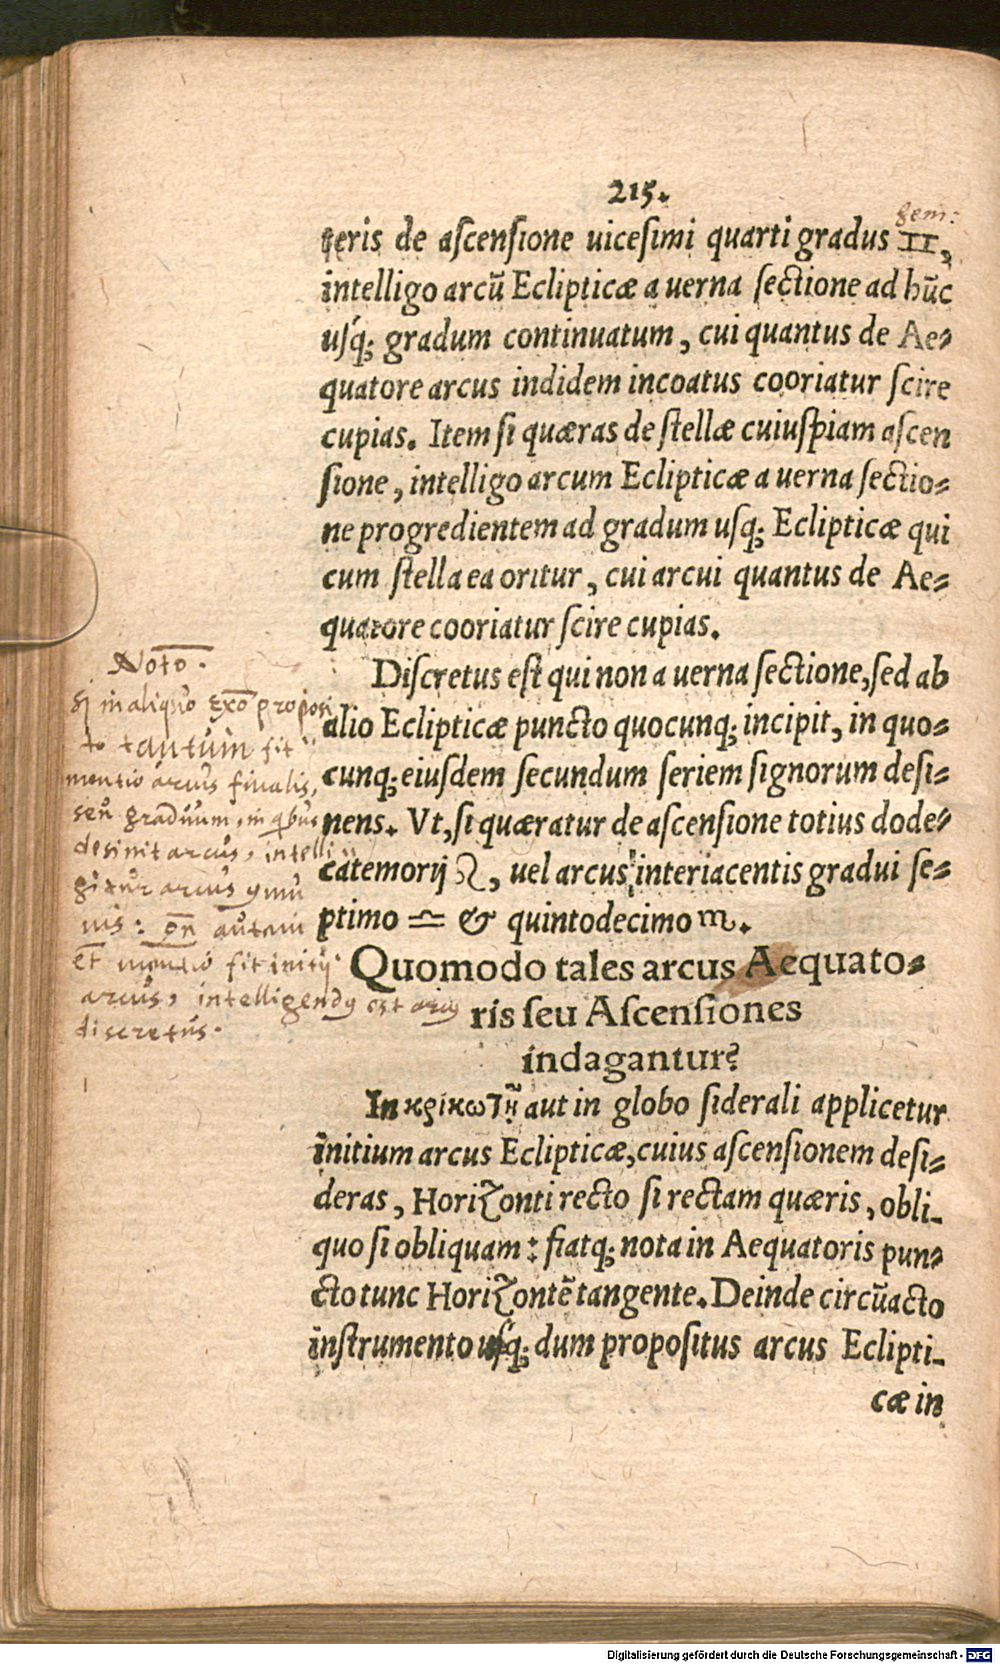 215.
gem:
teris de ascensione uicesimi quarti gradus ♊,
intelligo arcũ Eclipticæ a uerna sectione ad hũc
usq; gradum continuatum, cui quantus de Ae-
quatore arcus indidem incoatus cooriatur scire
cupias. Item si quæras de stellæ cuiuspiam ascen
sione, intelligo arcum Eclipticæ a uerna sectio-
ne progredientem ad gradum usq; Eclipticæ qui
cum stella ea oritur, cui arcui quantus de Ae-
quatore cooriatur scire cupias.
Discretus est qui non a uerna sectione, sed ab
alio Eclipticæ puncto quocunq; incipit, in quo-
cunq; eiusdem secundum seriem signorum desi-
nens. Vt, si quæratur de ascensione totius dode-
catemorij ♌, uel arcus interiacentis gradui se-
ptimo ♎ & quintodecimo ♏.
Noto.
si in aliquo exo proposi
to tantum fit
mentio arcus finalis,
seu graduum, in qbus
desinit arcus, intelli
gitur arcus
autem
mentio fit initij
arcus, intelligendus est arcus
discretus.
Quomodo tales arcus Aequato-
ris seu Ascensiones
indagantur?
In κρικωτῆ aut in globo siderali applicetur
initium arcus Eclipticæ, cuius ascensionem desi-
deras, Horizonti recto si rectam quæris, obli-
quo si obliquam: fiatq; nota in Aequatoris pun-
cto tunc Horizontẽ tangente. Deinde circũacto
instrumento usq; dum propositus arcus Eclipti-
cæ in
Digitalisierung gefördert durch die Deutsche Forschungsgemeinschaft - DFG